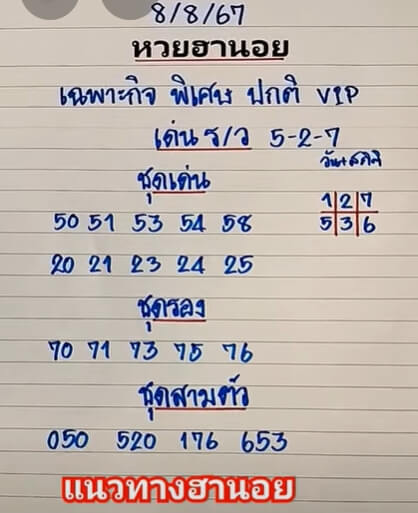 8/8/67
หวยฮานอย
เฉพาะกิจ พิเศษ ปกติ VIP
เด่น ร/ว 5-2-7
วิน+สถิติ
ชุดเด่น
1 2 7
5 3 6
50 51 53 54 58
20 21 23 24 25
ชุดรอง
70 71 73 75 76
ชุดสามตัว
050 520 176 653
แนวทางฮานอย